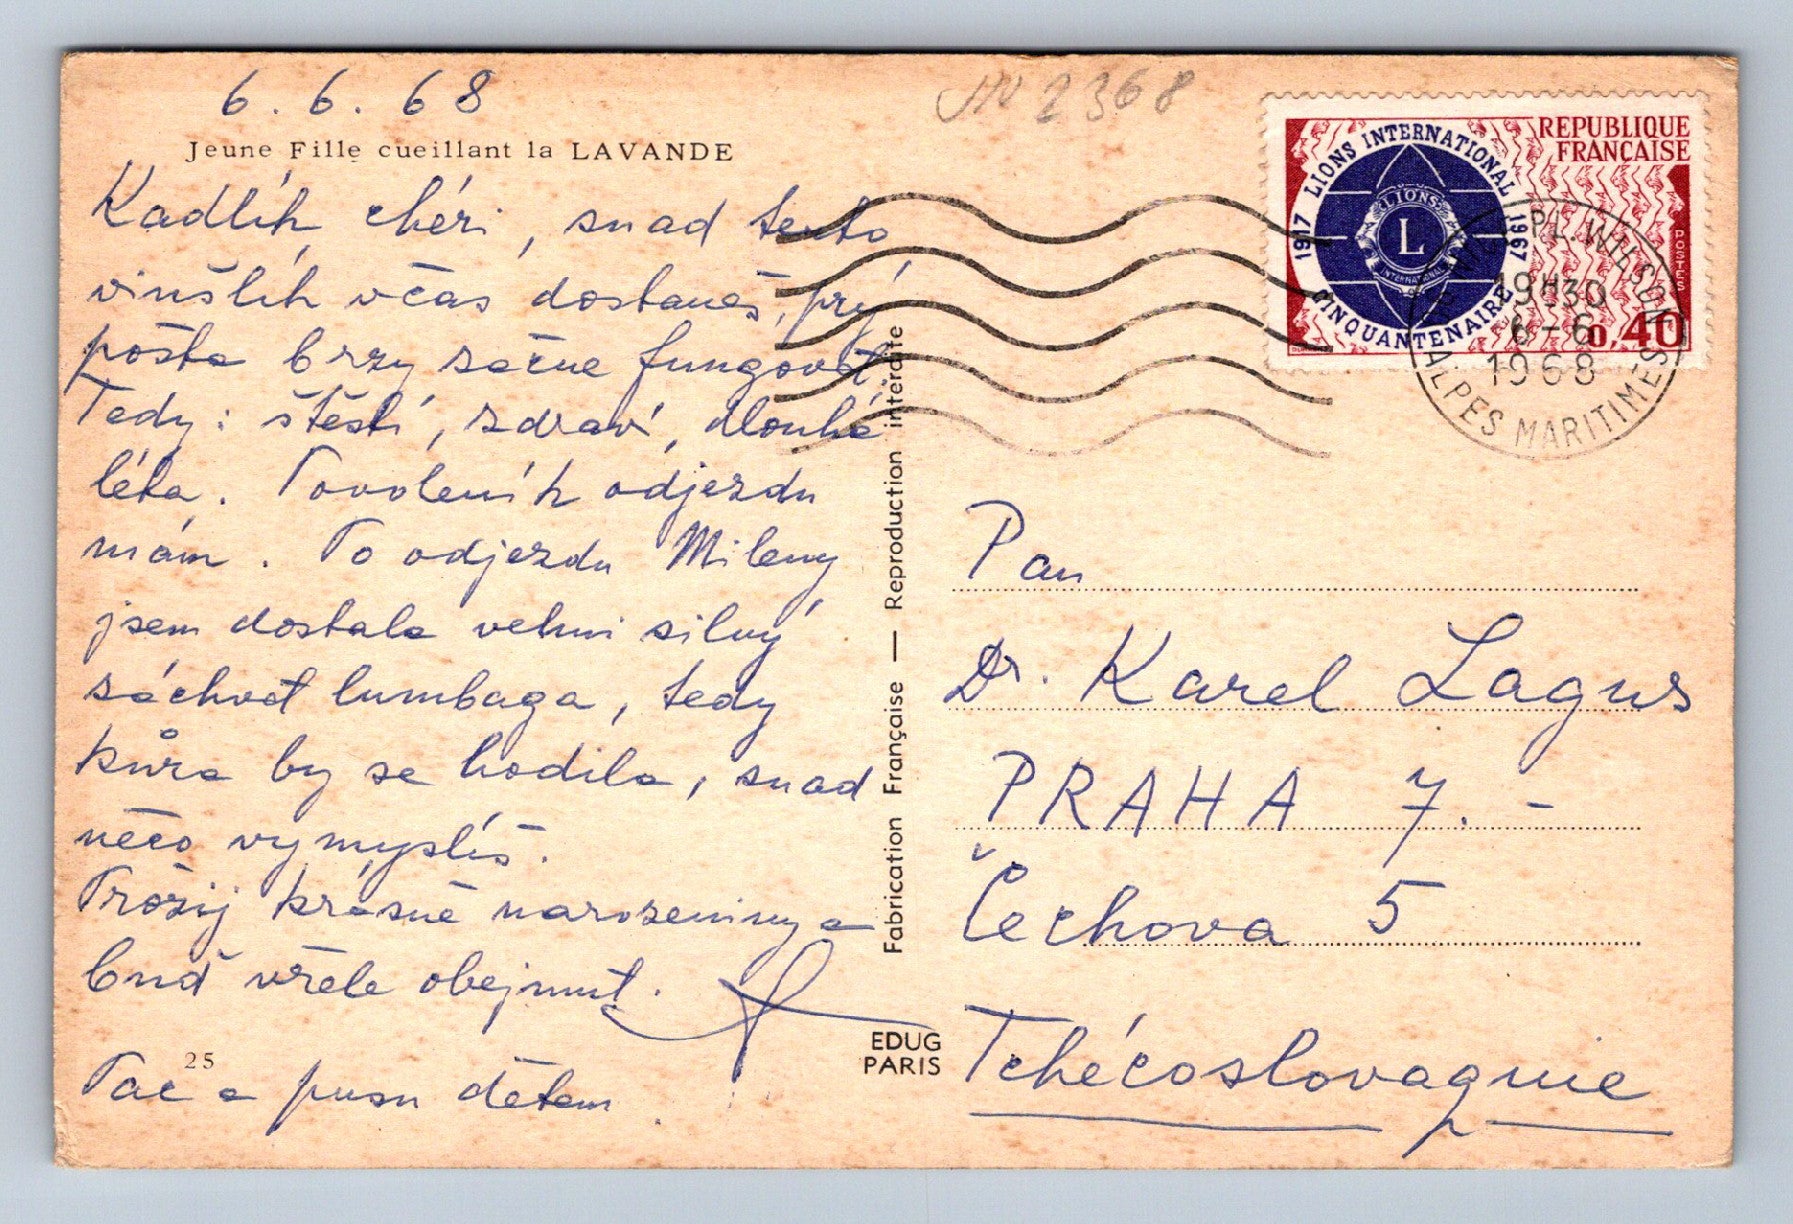 6. 6. 68
Jeune Fille cueillant la LAVANDE
Kadlíh, chéri, snad tento
vinšlíh včas dostaneš, prý
pošta brzy začne fungovat.
Tedy: štěstí, zdraví, dlouhá
léta. Povoleních odjezdu
mám. Po odjezdu Mileny
jsem dostala velmi silný
záchvat lumbaga, tedy
kůra by se hodila, snad
něco vymyslíš.
Prožij krásné narozeniny a
buď vřele objemut.
25
Pac a pusu dětem.
2368
REPUBLIQUE
FRANÇAISE
1917 LIONS INTERNATIONAL 1967
CINQUANTENAIRE
LIONS
L
INTERNATIONAL
POSTES
0,40
PL. WILSON
19H30
6-6
1968
ALPES MARITIMES
Fabrication Française — Reproduction interdite
EDUG
PARIS
Pan
Dr. Karel Lagus
PRAHA 7. -
Čechova 5
Tchécoslovaquie